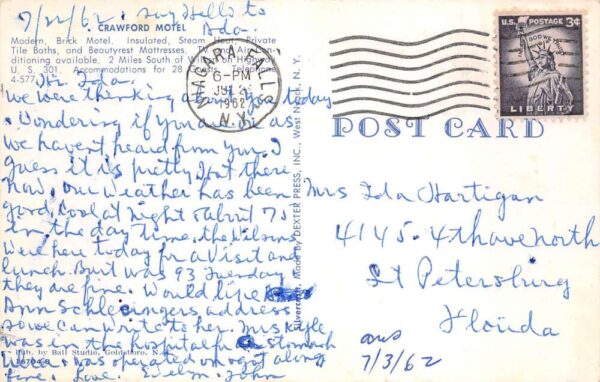 7/22/62. Say Hello to
Ada.
CRAWFORD MOTEL
Modern, Brick Motel. Insulated, Steam Heat, Private
Tile Baths, and Beautyrest Mattresses. TV and Air Con-
ditioning available. 2 Miles South of Wilson on Highway
U. S. 301. Accommodations for 28 Guests. Telephone
4-577
Hi Ida.
We were thinking about you today
Wondering if you are as
we haven't heard from you. I
guess it is pretty hot there
now. Our weather has been
good, cool at night & abrit 75
in the day time. the Wilsons
were here today for a visit and
lunch. Burt was 93 Tuesday
they are fine. Would like
Ann Schlesingers address
so we can write to her. Mrs Kyle
was in the hospital for a stomach
was operated on
fine. Love. Evelyn. John
Pub. by Ball Studio, Goldsboro, N.
Silvercraft Made by DEXTER PRESS, INC., West Nyack, N. Y.
NIAGARA FALLS
6-PM
1962
N.Y.
U.S. POSTAGE 3¢
IN GOD WE TRUST
LIBERTY
POST CARD
Mrs Ida Hartigan
4145-4th ave north
St Petersburg
Florida
ans
7/3/62